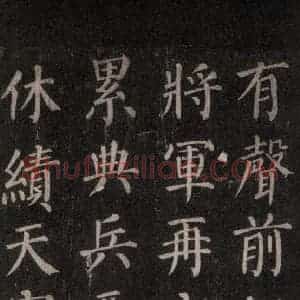 有聲前
將軍再
累典兵
休績天